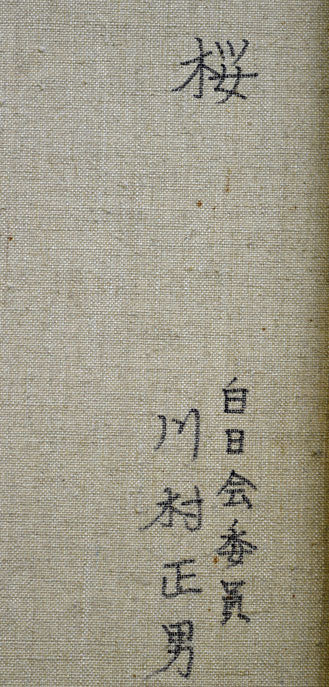 桜
白日会委員
川村正男